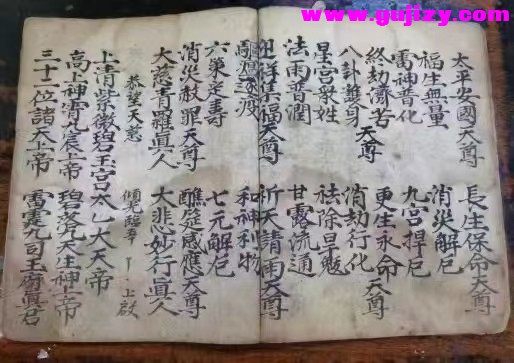 www.gujizy.com
太平安國天尊 長生保命天尊
福生無量 消災解厄
雷神普化 九宮捍厄
終劫濟苦天尊 更生永命天尊
八卦護身 消劫行化
星宮衆姓 祛除
法雨普潤 甘露流通
祥集福天尊 祈天請雨天尊
和神利物
六策定壽 七元解厄
消災赦罪天尊 醮筵感應天尊
大慈青羅真人 大悲妙行真人
恭望天慈 上啟
上清紫微碧玉宮 太乙大天帝
高上神霄九宸上帝 碧落九天生神上帝
三十二位諸天上帝 雷霆九司玉府真君